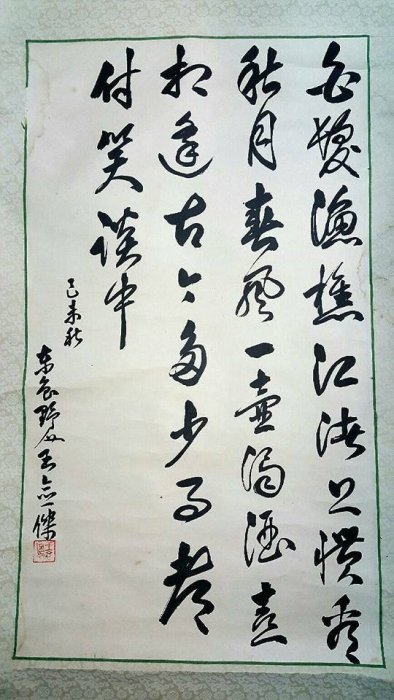 白髮漁樵江渚上慣看
秋月春風一壺濁酒喜
相逢古今多少事都
付笑談中
己未秋
東野人王傑